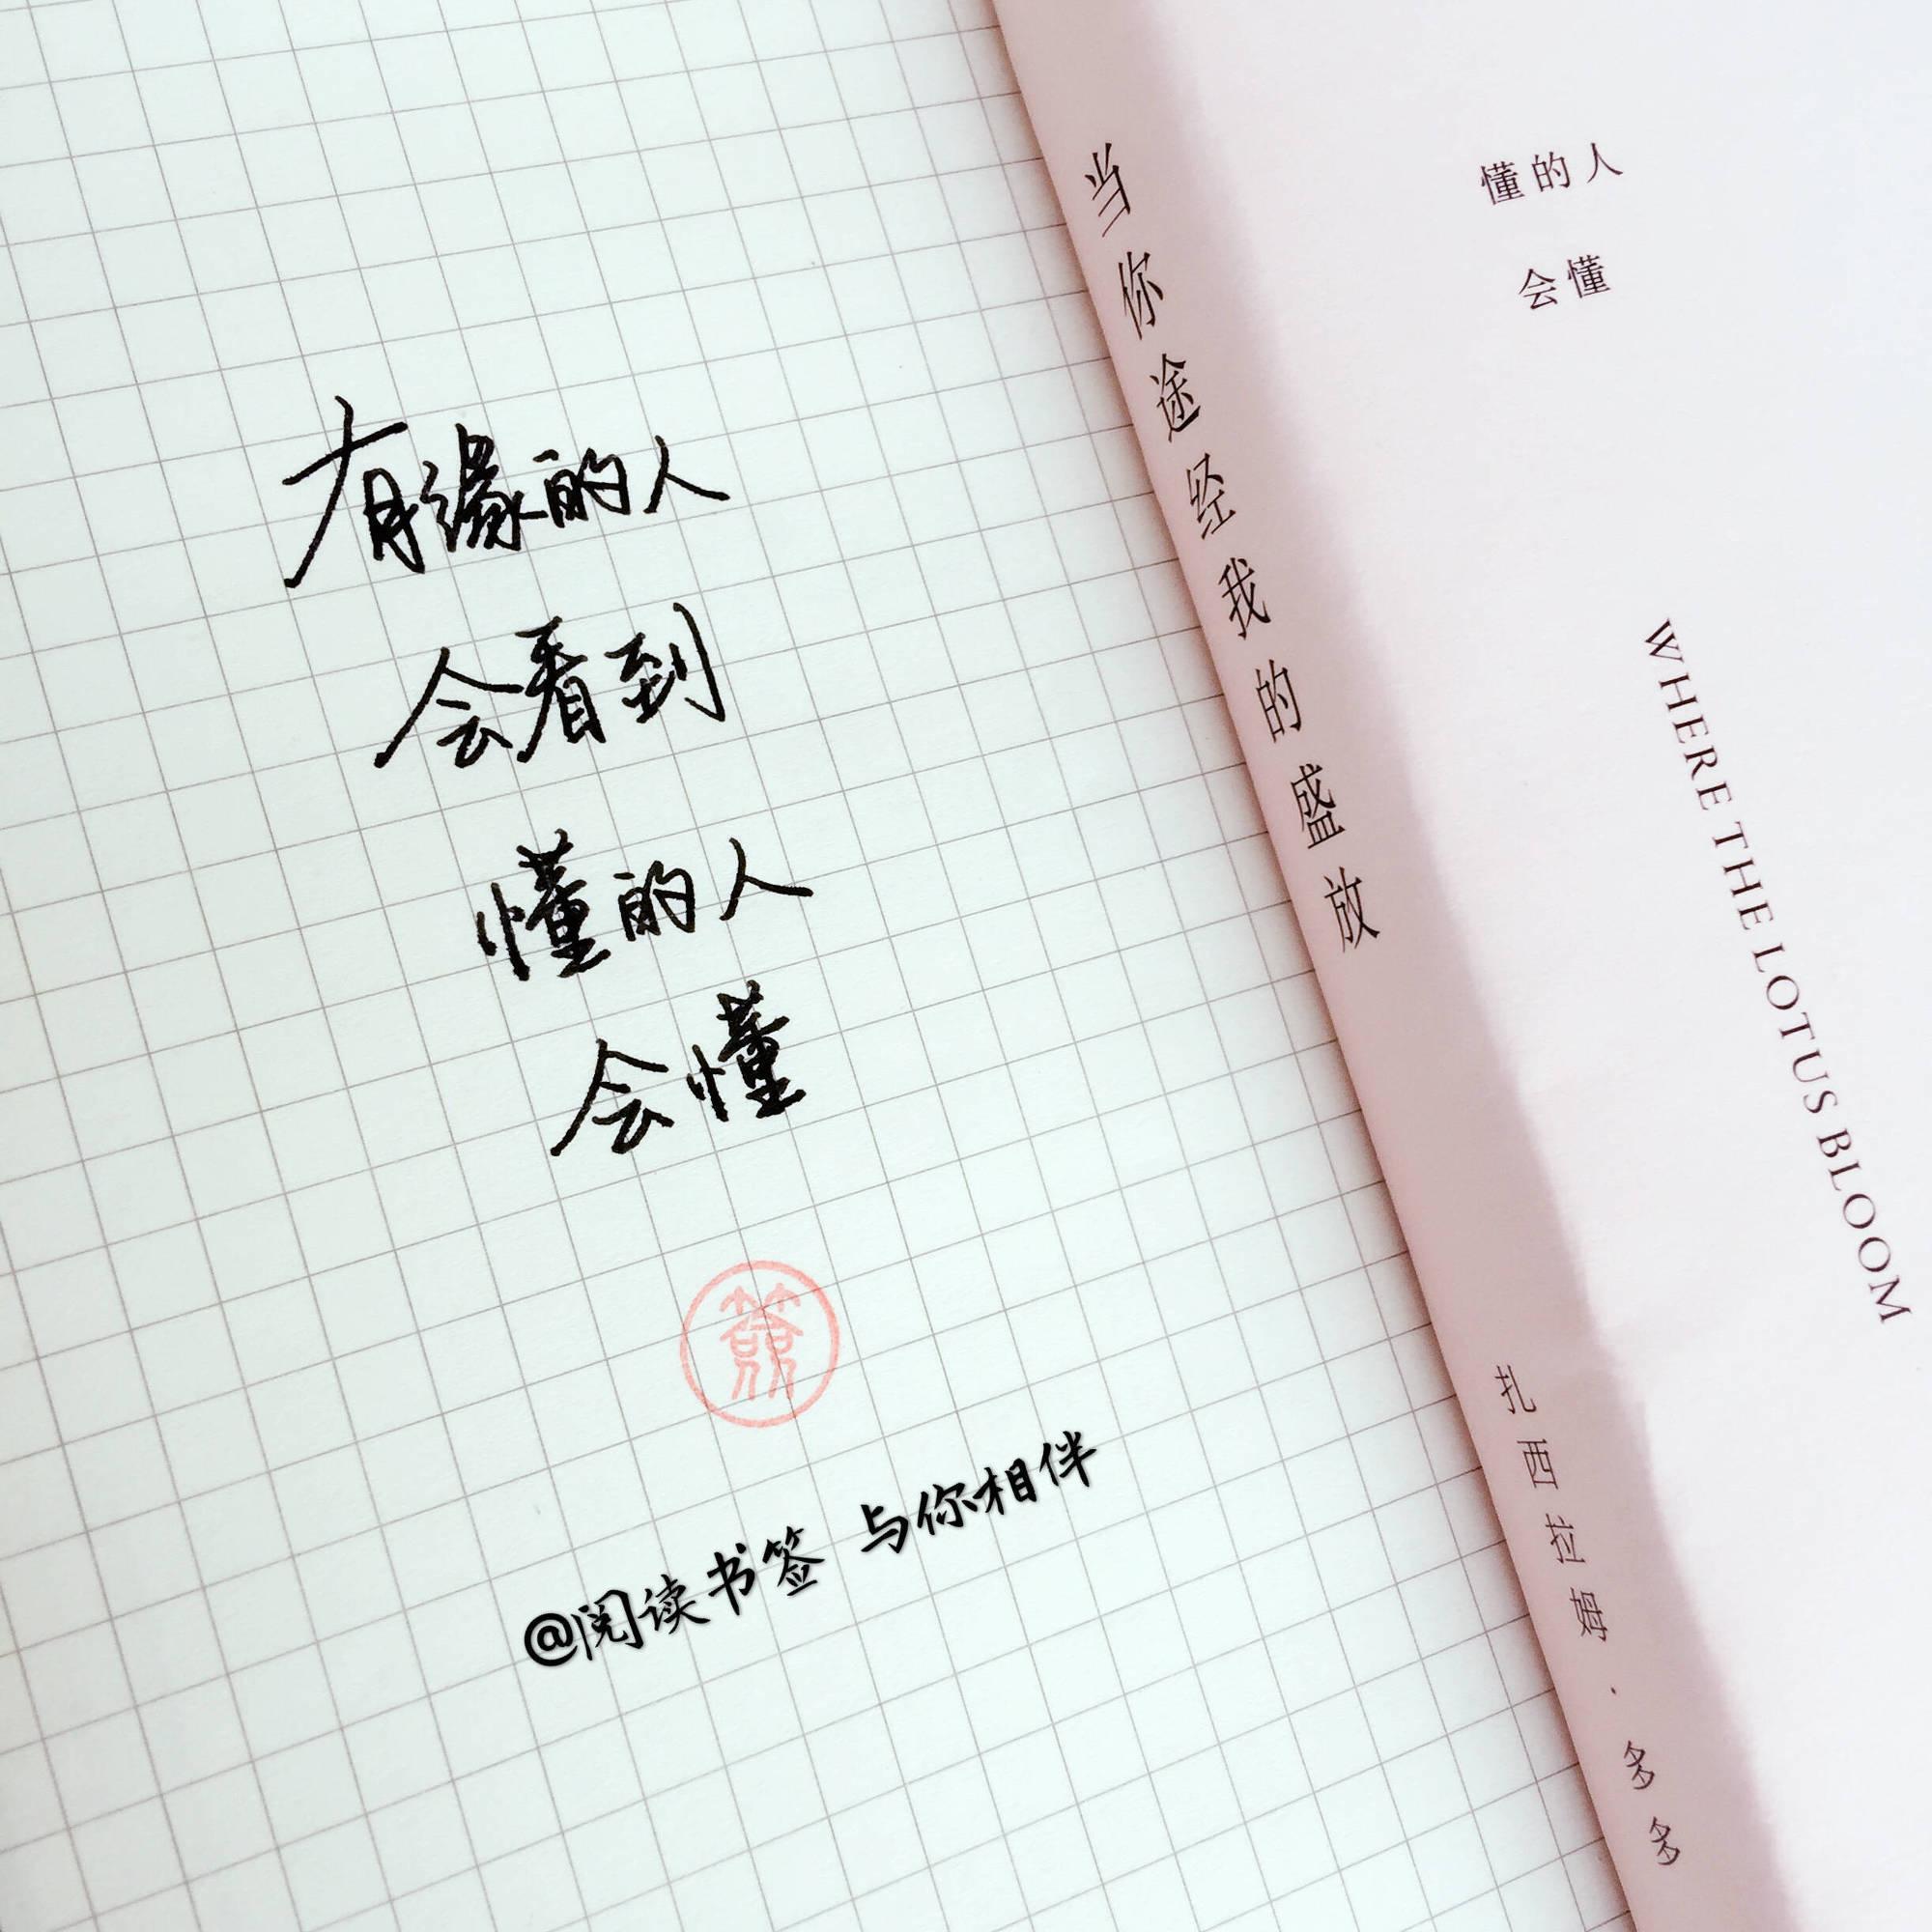 有缘的人
会看到
懂的人
会懂
簽
@阅读书签 与你相伴
当你途经我的盛放
扎西拉姆·多多
懂的人
会懂
WHERE THE LOTUS BLOOM